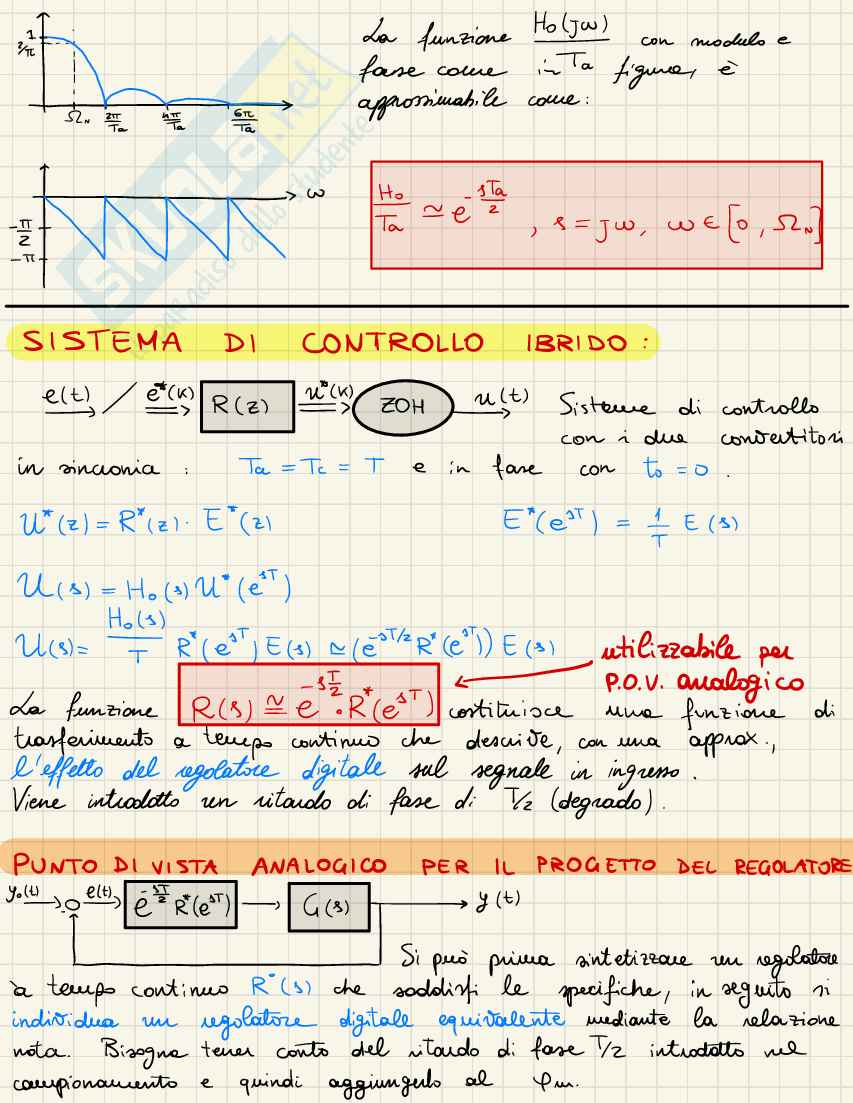 1
2/π
Ω_N 2π/Ta 4π/Ta 6π/Ta
La funzione H₀(jω)/Ta con modulo e
fase come in figura, è
approssimabile come:
ω
-π/2
-π
H₀/Ta ≃ e^(-sTa/2) , s = jω, ω ∈ [0, Ω_N]
SKUOLA.net
il paradiso dello studente
SISTEMA DI CONTROLLO IBRIDO:
e(t) e*(k) R(z) u*(k) ZOH u(t)
Sistema di controllo
con i due convertitori
in sincronia : Ta = Tc = T e in fase con t₀ = 0 .
U*(z) = R*(z) · E*(z) E*(e^sT) = 1/T E(s)
U(s) = H₀(s) U*(e^sT)
U(s) = H₀(s)/T R*(e^sT) E(s) ≃ (e^(-sT/2) R*(e^sT)) E(s)
utilizzabile per
P.O.V. analogico
La funzione R(s) ≅ e^(-sT/2) · R*(e^sT) costituisce una funzione di
trasferimento a tempo continuo che descrive, con una approx.,
l'effetto del regolatore digitale sul segnale in ingresso .
Viene introdotto un ritardo di fase di T/2 (degrado) .
PUNTO DI VISTA ANALOGICO PER IL PROGETTO DEL REGOLATORE
y₀(t) e(t) e^(-sT/2) R*(e^sT) G(s) y(t)
-
Si può prima sintetizzare un regolatore
a tempo continuo R°(s) che soddisfi le specifiche, in seguito si
individua un regolatore digitale equivalente mediante la relazione
nota. Bisogna tener conto del ritardo di fase T/2 introdotto nel
campionamento e quindi aggiungerlo al φm.